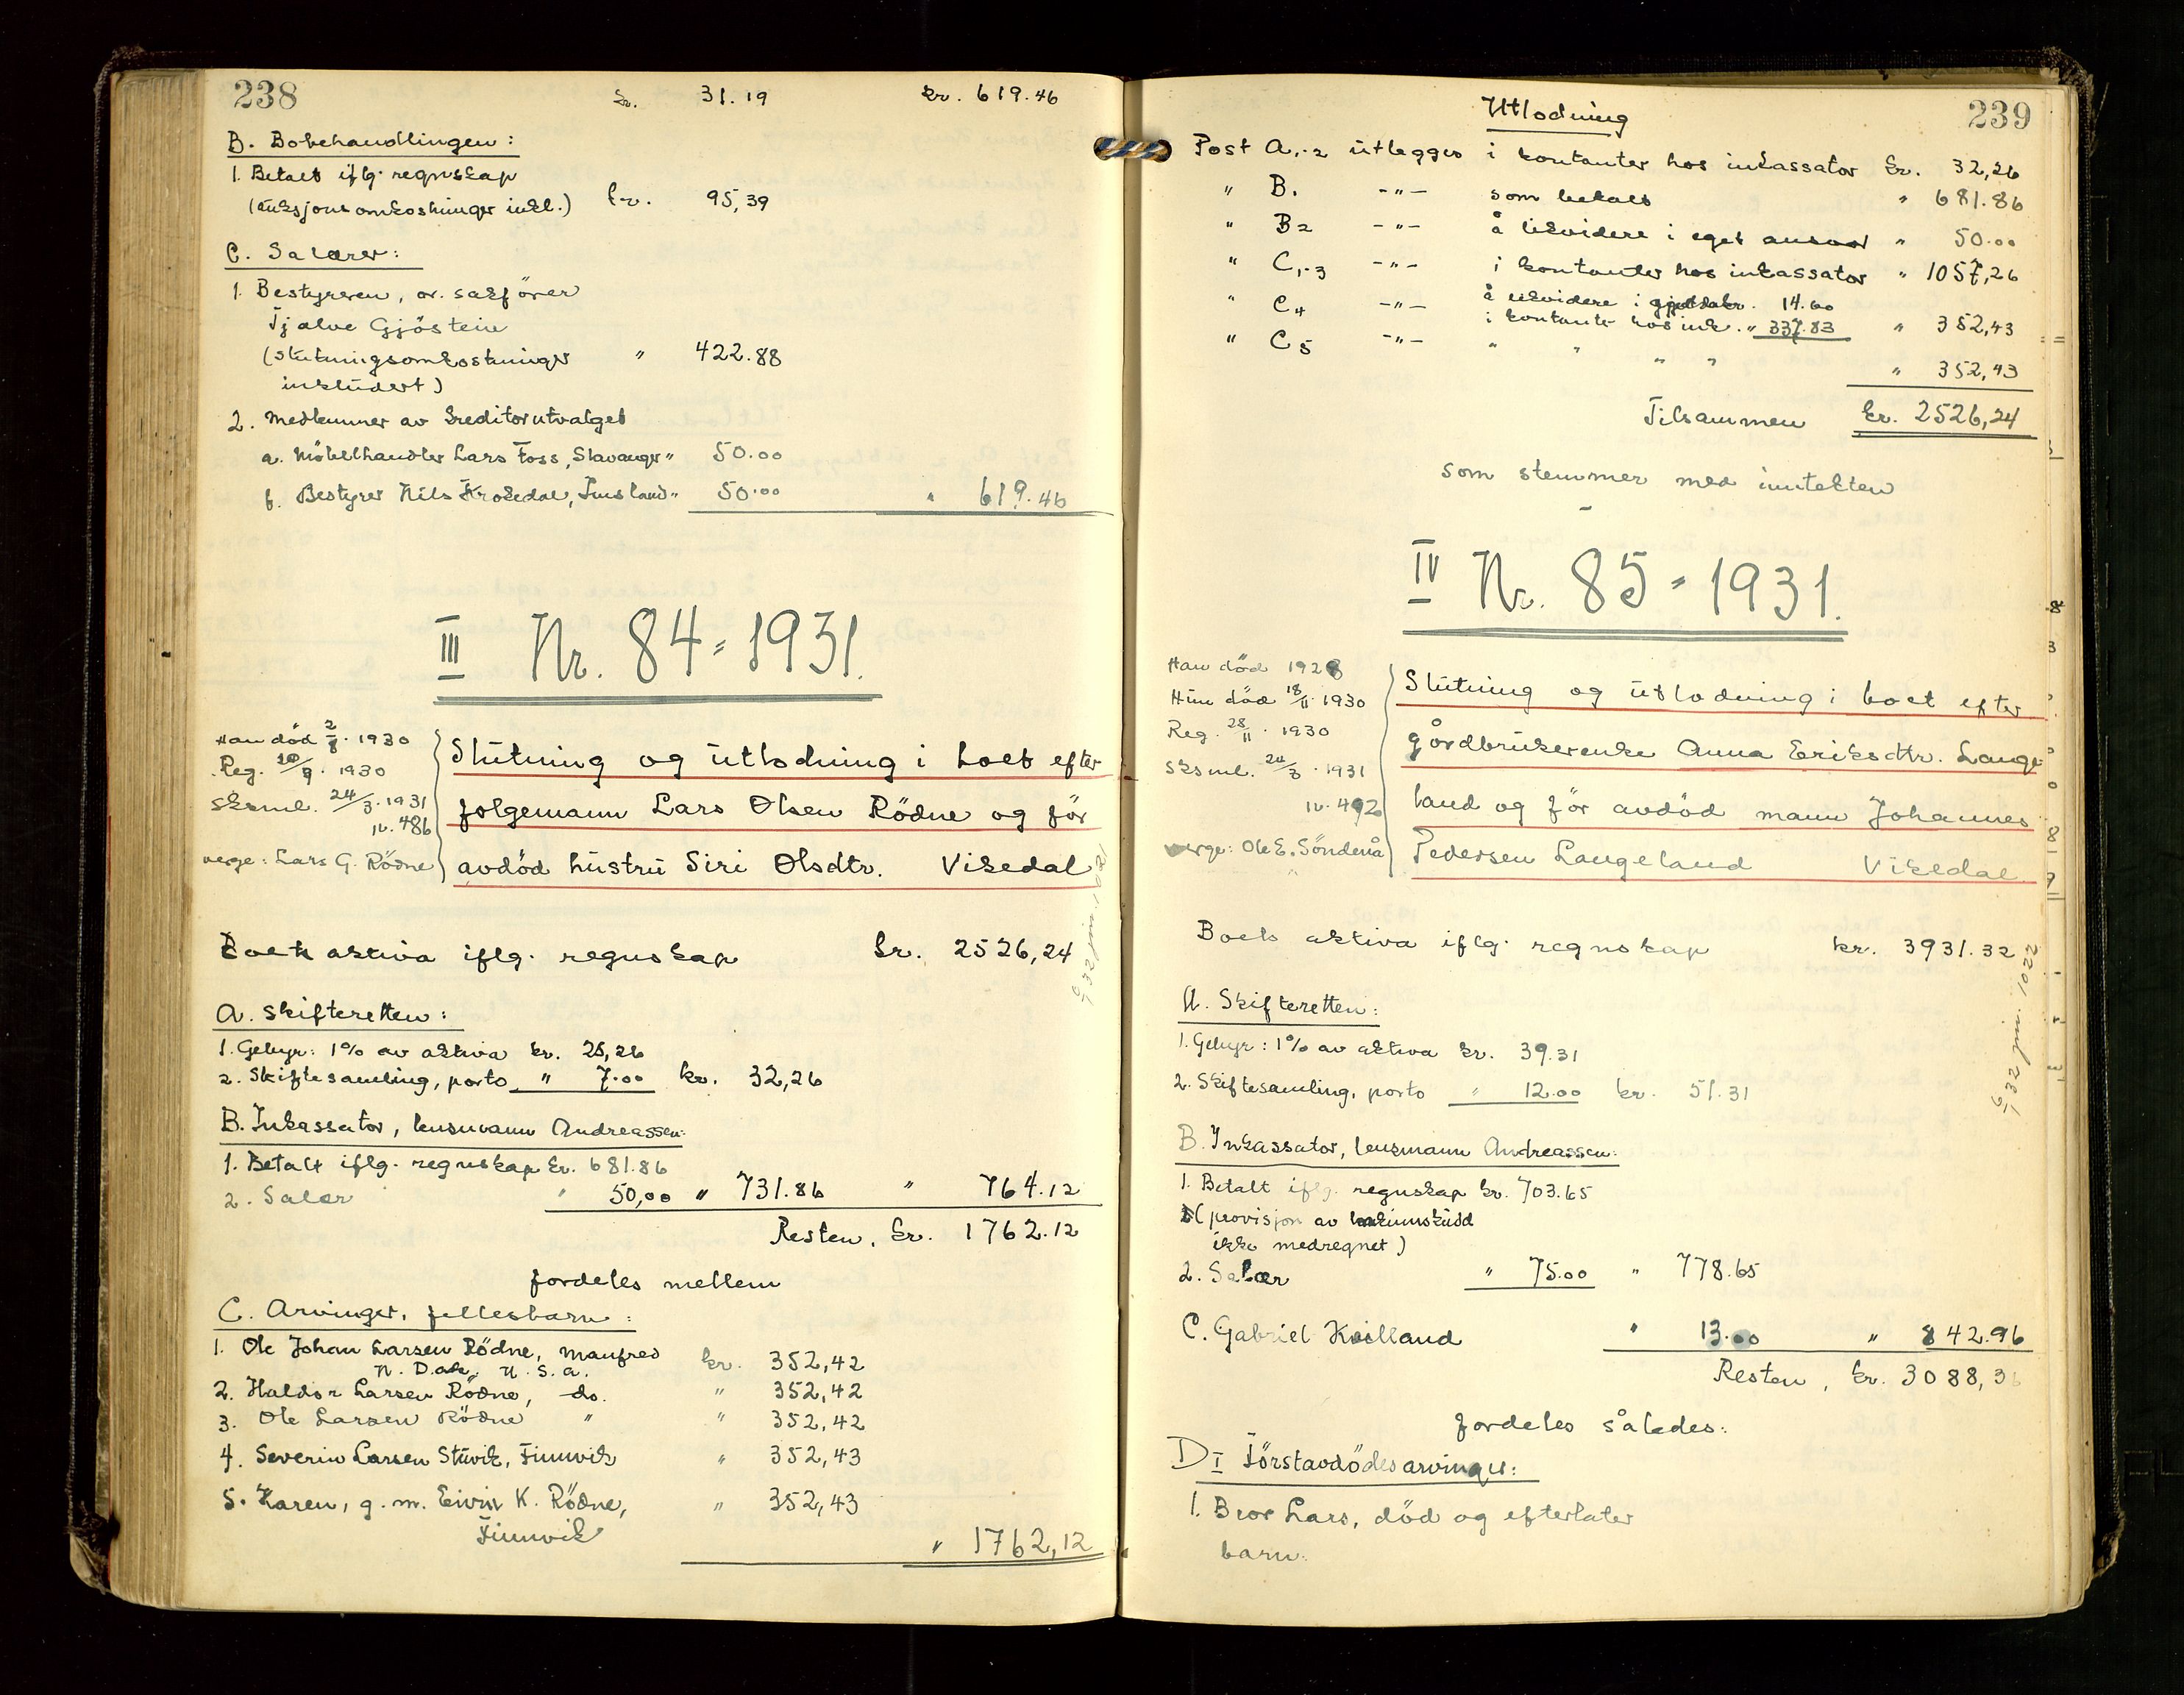 238
kr. 31.19 kr. 619.46
B. Bobehandlingen:
1. Betalt iflg. regnskap
(auksjonsomkostninger inkl.) kr. 95,39
C. Salærer:
1. Bestyreren, o.r. sakförer
Tjalve Gjöstein
(slutningsomkostninger " 422.88
inkludert)
2. Medlemmer av kreditorutvalget
a. Möbelhandler Lars Foss, Stavanger " 50.00
b. Bestyrer Nils Krokedal, Imsland " 50.00 " 619.46
III Nr. 84 = 1931.
Han död 2/8. 1930
Reg. 20/9. 1930
Sksml. 24/3. 1931
iv. 486
verge: Lars G. Rödne
Slutning og utlodning i boet efter
folgemann Lars Olsen Rödne og för
avdöd hustru Siri Olsdtr. Vikedal
Boets aktiva iflg. regnskap kr. 2526,24
A. Skifteretten:
1. Gebyr: 1% av aktiva kr. 25,26
2. Skiftesamling, porto " 7.00 kr. 32,26
B. Inkassator, lensmann Andreassen:
1. Betalt iflg. regnskap kr. 681.86
2. Salær " 50,00 " 731.86 " 764.12
Resten, kr. 1762.12
fordeles mellem
C. Arvinger, fellesbarn:
1. Ole Johan Larsen Rödne, Manfred kr. 352,42
N. Dak., U.S.A.
2. Haldor Larsen Rödne, do. " 352,42
3. Ole Larsen Rödne " " 352,42
4. Severin Larsen Stuvik, Finnvik " 352,43
5. Karen, g.m. Eivin K. Rödne, " 352,43
Finnvik
" 1762,12
239
Utlodning
Post A,1-2 utlegges i kontanter hos inkassator kr. 32,26
" B1 -"- som betalt " 681.86
" B2 -"- å likvidere i eget ansvar " 50.00
" C,1-3 -"- i kontanter hos inkassator " 1057,26
" C4 -"- å likvidere i gjeld kr. 14.60
i kontanter hos ink. " 337.83 " 352,43
" C5 -"- " " " " " 352,43
Tilsammen kr. 2526,24
som stemmer med inntekten
IV Nr. 85 = 1931.
Han död 1928
Hun död 18/11. 1930
Reg. 28/11. 1930
Sksml. 24/3. 1931
iv. 492
verge: Ole E. Söndenå
Slutning og utlodning i boet efter
gårdbrukerenke Anna Eriksdtr. Lange-
land og för avdöd mann Johannes
Pedersen Langeland Vikedal
Boets aktiva iflg. regnskap kr. 3931.32
A. Skifteretten:
1. Gebyr: 1% av aktiva kr. 39.31
2. Skiftesamling, porto " 12.00 kr. 51.31
B. Inkassator, lensmann Andreassen:
1. Betalt iflg. regnskap kr. 703.65
(provisjon av
ikke medregnet)
2. Salær " 75.00 " 778.65
C. Gabriel Kvilland " 13.00 " 842.96
Resten, kr. 3088,36
fordeles således:
D I Förstavdödes arvinger:
1. Bror Lars, död og efterlater
barn: